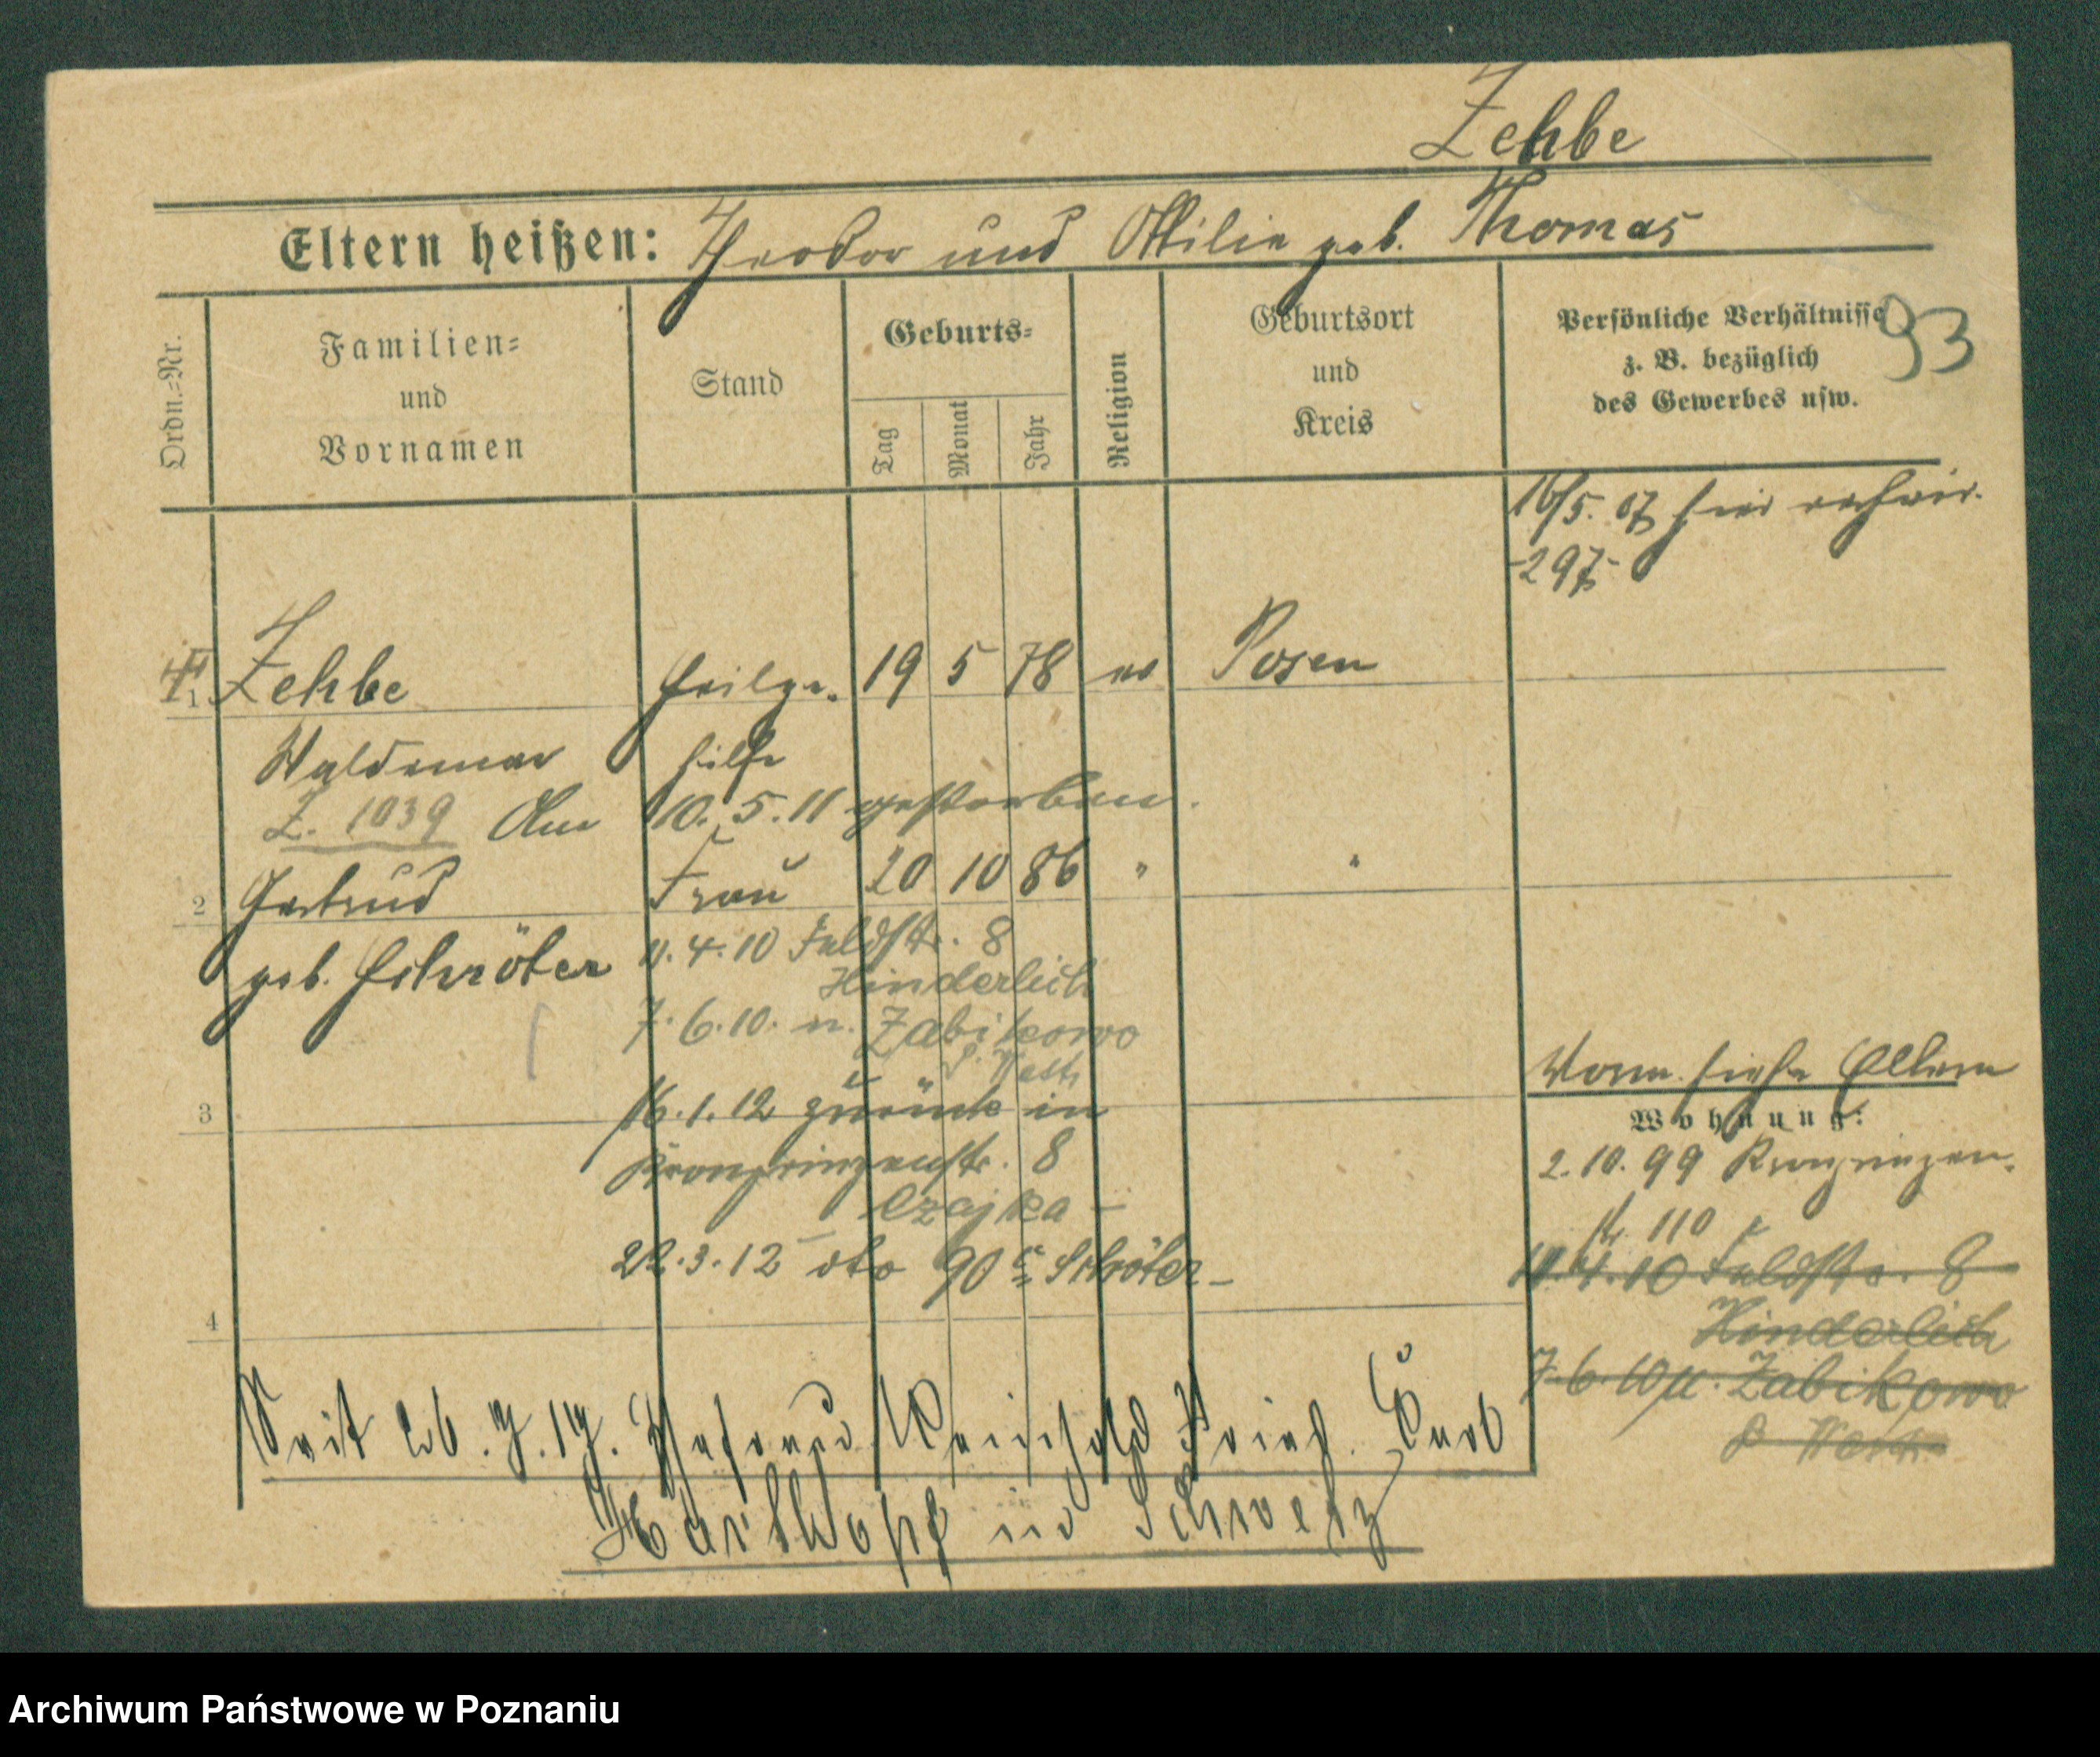 Zehbe
Eltern heißen: Theodor und Ottilie geb. Thomas
Ordn.=Nr.
Familien=
und
Vornamen
Stand
Geburts=
Tag
Monat
Jahr
Religion
Geburtsort
und
Kreis
Persönliche Verhältnisse
z. B. bezüglich
des Gewerbes usw.
93
16/5. 07 hier verheir.
-297-
1 Zehbe 19 5 78 ev Posen
Waldemar
Z. 1039 Am 10. 5. 11 gestorben.
2 Gertrud Frau 20 10 86 " "
geb. Schröter
11. 4. 10 Feldstr. 8
Hinderlich
7. 6. 10. n. Zabikowo
P. West
3
16. 1. 12 zurück in
Kronprinzenstr. 8
Czajka -
22. 3. 12 dto 90 c Schröter -
4
Vorm. siehe Eltern
Wohnung:
2. 10. 99 Kronprinzen-
str. 110
11. 4. 10 Feldstr. 8
Hinderlich
7. 6. 10 n. Zabikowo
P. West
Seit 26. 7. 17. Reinhold Fried. Curt
in Schwetz
Archiwum Państwowe w Poznaniu